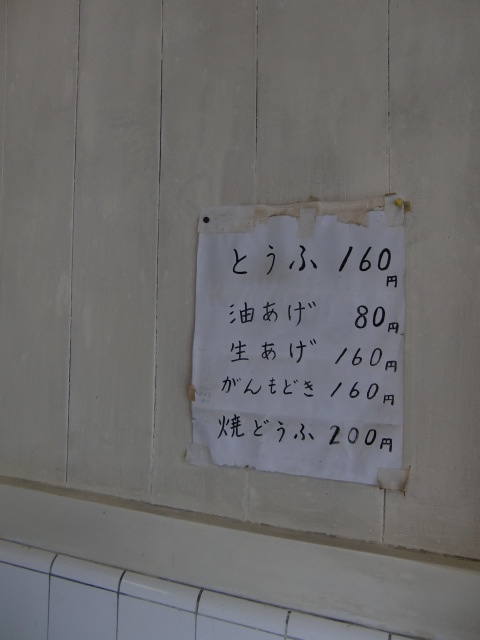 とうふ 160円
油あげ 80円
生あげ 160円
がんもどき 160円
焼どうふ 200円